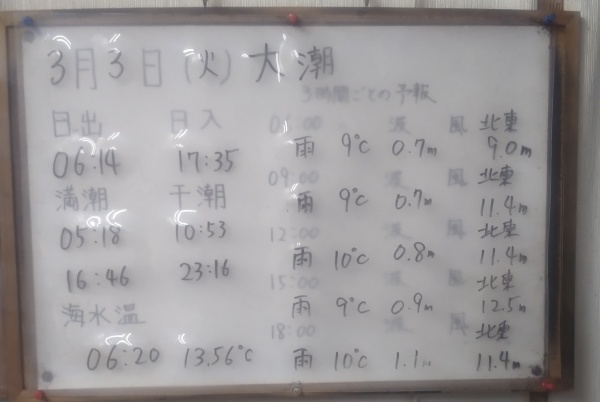 3月3日(火)大潮
3時間ごとの予報
日出 日入
06:14 17:35
満潮 干潮
05:18 10:53
16:46 23:16
海水温
06:20 13.56℃
06:00 波 風 北東
雨 9℃ 0.7m 9.0m
09:00 波 風 北東
雨 9℃ 0.7m 11.4m
12:00 波 風 北東
雨 10℃ 0.8m 11.4m
15:00 波 風 北東
雨 9℃ 0.9m 12.5m
18:00 波 風 北東
雨 10℃ 1.1m 11.4m